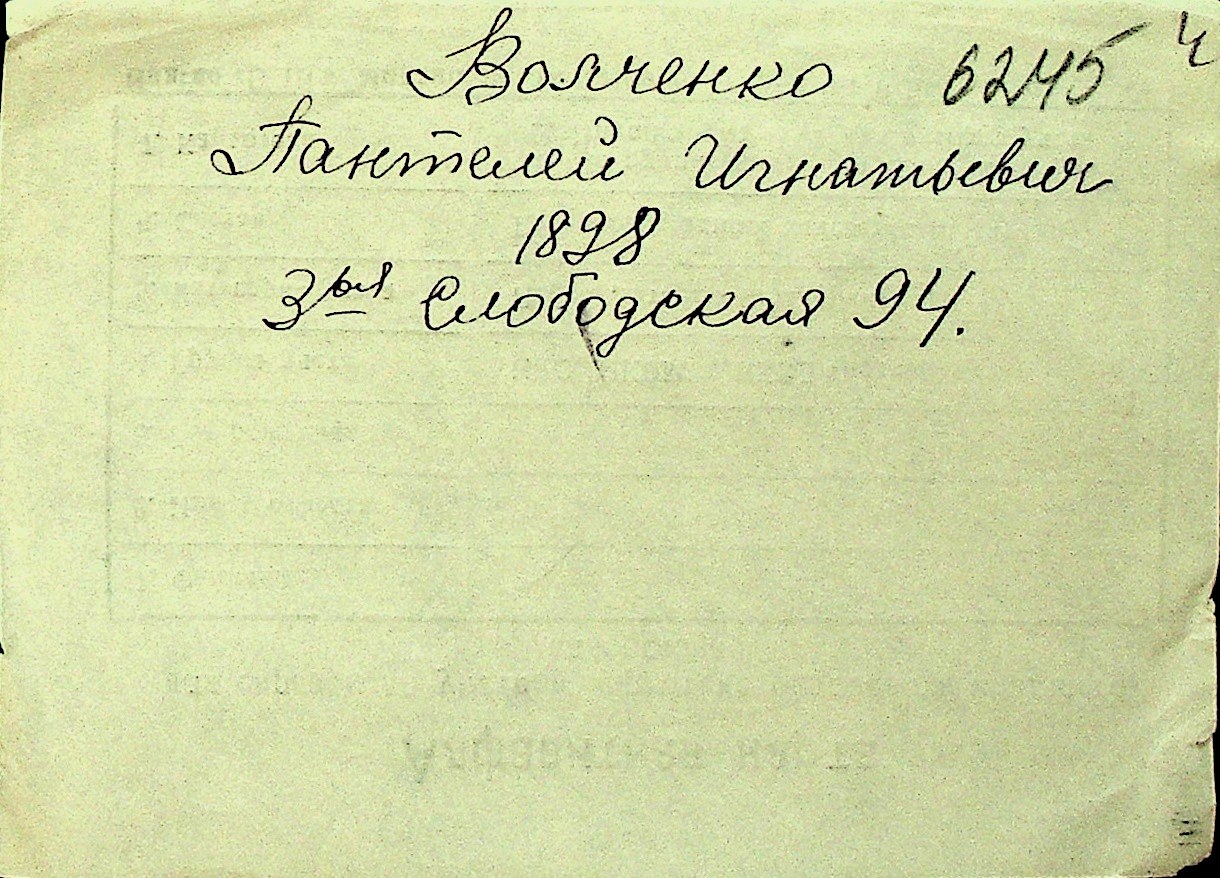 Волченко 6245 ч
Пантелей Игнатьевич
1898
3ья Слободская 94.